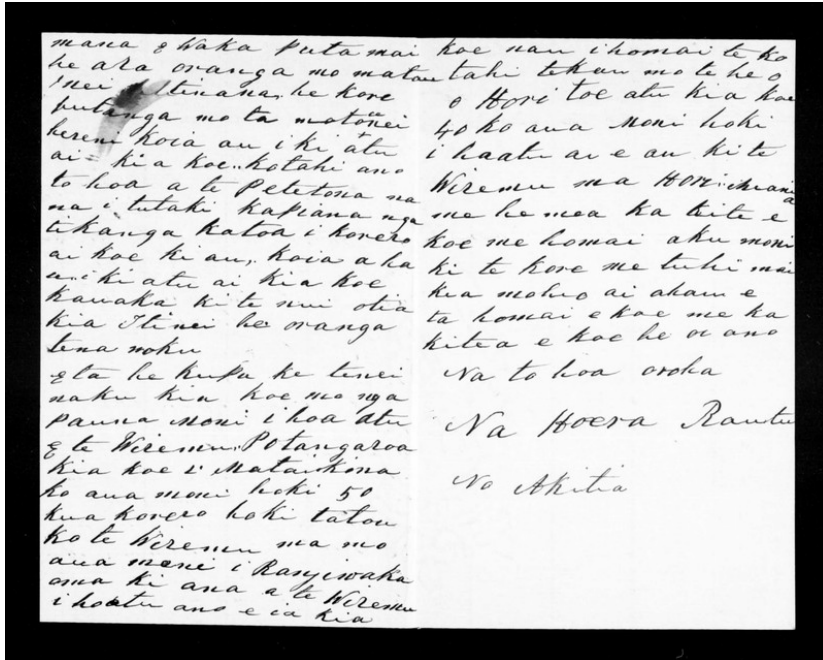 mana e Waka puta mai
he ara oranga mo matou
inei Utinana, he kore
putanga mo ta matou nei
hereni koia au i ki atu
ai = kia koe kotahi ano
to hoa a te Peletona na
na i tutaki Kapiana nga
tikanga katoa i korero
ai koe ki au, koia aha
au i ki atu ai kia koe
kauaka ki te nui otia
kia Itinei he oranga
tena noku
e ta he kupu ke tenei
naku kia koe mo nga
Pauna Moni i hoa atu
e te Wiremu Potangaroa
kia koe i Mataikona
ko aua moni hoki 50
kua korero hoki tatou
ko te Wiremu ma mo
aua moni i Rangiwaka
oma ki ana a te Wiremu
i hoatu ano e ia kia
koe nau i homai te ko
tahi tekau mo te he o
o Hori toe atu kia koe
40 ko aua Moni hoki
i haatu ai e au ki te
Wiremu ma Hori
me he mea ka kite e
koe me homai aku moni
ki te kore me tuhi mai
kia mohio ai ahau e
ta homai e koe me ka
kitea e koe he oi ano
Na to hoa aroha
Na Hoera Rautu
No Akitia